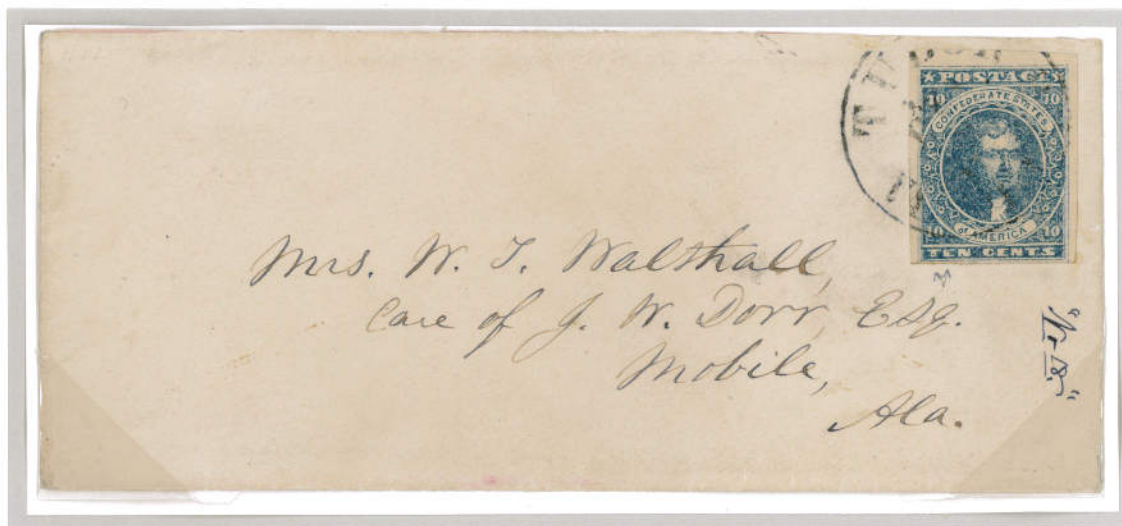 ★ POSTAGE
10 10
CONFEDERATE STATES
of AMERICA
10 10
TEN CENTS
Mrs. W. T. Walthall,
Care of J. W. Dorr, Esq.
Mobile,
Ala.